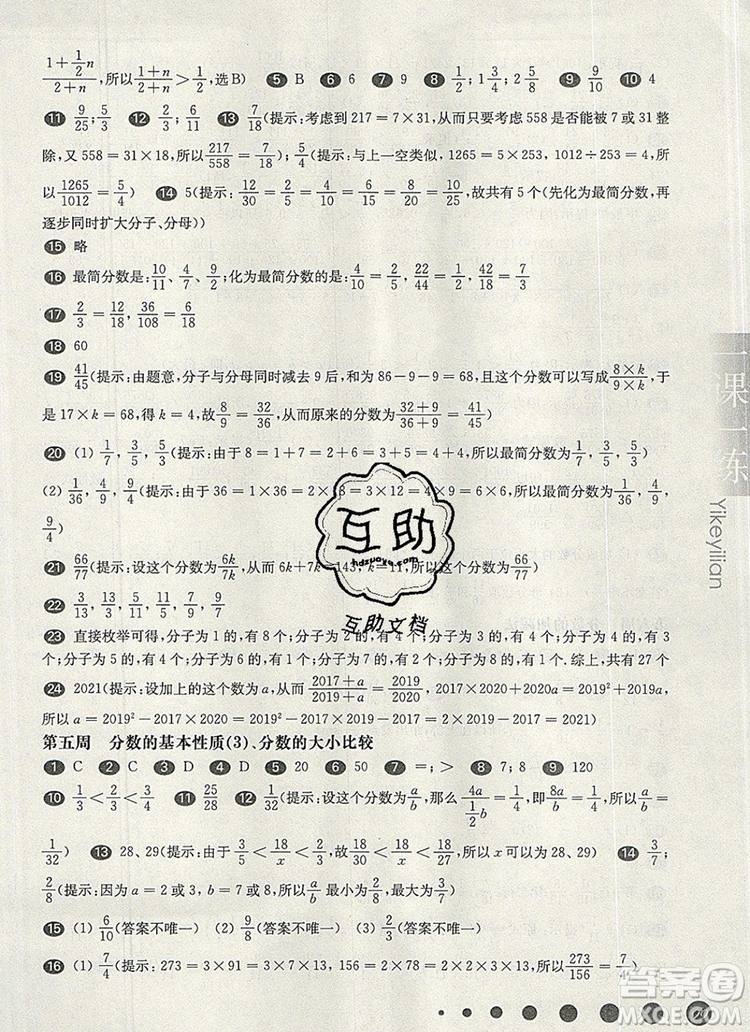 (1+1/2n)/(2+n),所以(1+n)/(2+n)>1/2,选B) 5 B 6 6 7 9 8 1/2;1 3/4;2 5/8 9 9/10 10 4
11 9/25;5/3 12 2/3;6/11 13 7/18(提示:考虑到217=7×31,从而只要考虑558是否能被7或31整
除,又558=31×18,所以217/558=7/18);5/4(提示:与上一空类似,1265=5×253,1012÷253=4,所
以1265/1012=5/4) 14 5(提示:12/30=2/5=4/10=6/15=8/20=10/25,故共有5个(先化为最简分数,再
逐步同时扩大分子、分母))
15 略
16 最简分数是:10/11、4/7、9/7;化为最简分数的是:4/10=2/5,22/44=1/2,42/18=7/3
17 2/3=12/18,36/108=6/18
18 60
19 41/45(提示:由题意,分子与分母同时减去9后,和为86-9-9=68,且这个分数可以写成(8×k)/(9×k),于
是17×k=68,得k=4,故8/9=32/36,从而原来的分数为(32+9)/(36+9)=41/45)
20 (1) 1/7,2/6,3/5(提示:由于8=1+7=2+6=3+5=4+4,所以最简分数为1/7,3/5)
(2) 1/36,4/9,9/4(提示:由于36=1×36=2×18=3×12=4×9=6×6,所以最简分数为1/36,4/9,
9/4)
21 66/77(提示:设这个分数为6k/7k,从而6k+7k=143,k=11,所以这个分数为66/77)
22
23 直接枚举可得,分子为1的,有8个;分子为2的,有4个;分子为3的,有4个;分子为4的,有3个;分
子为5的,有4个;分子为6的,有1个;分子为7的,有2个;分子为8的,有1个.综上,共有27个
24 2021(提示:设加上的这个数为a,从而(2017+a)/(2019+a)=2019/2020,所以2017×2020+2020a=2019²+2019a,
所以a=2019²-2017×2020=2019²-2017×2019-2017=2019×2-2017=2021)
第五周 分数的基本性质(3)、分数的大小比较
1 C 2 C 3 D 4 D 5 20 6 50 7 =;> 8 7;8 9 120
10 1/3<2/3<3/4 11 25/28 12 1/32(提示:设这个分数为a/b,那么4a/(1/2b)=1/4,即8a/b=1/4,所以这个分数为
1/32) 13 28、29(提示:由于3/5<18/x<2/3,故18/30<18/x<18/27,所以x可以为28、29) 14 3/7;
2/8(提示:因为a=2或3,b=7或8,所以a/b最小为2/8,最大为3/7)
15 (1) 6/10(答案不唯一) (2) 9/8(答案不唯一) (3) 3/2(答案不唯一)
16 (1) 7/4(提示:273=3×91=3×13×7,156=2×78=2×2×39=2×2×3×13,所以273/156=7/4)
一课一练
Yikeyilian
互助
hdzuoye.com
互助文档
答案圈
MXQE.COM